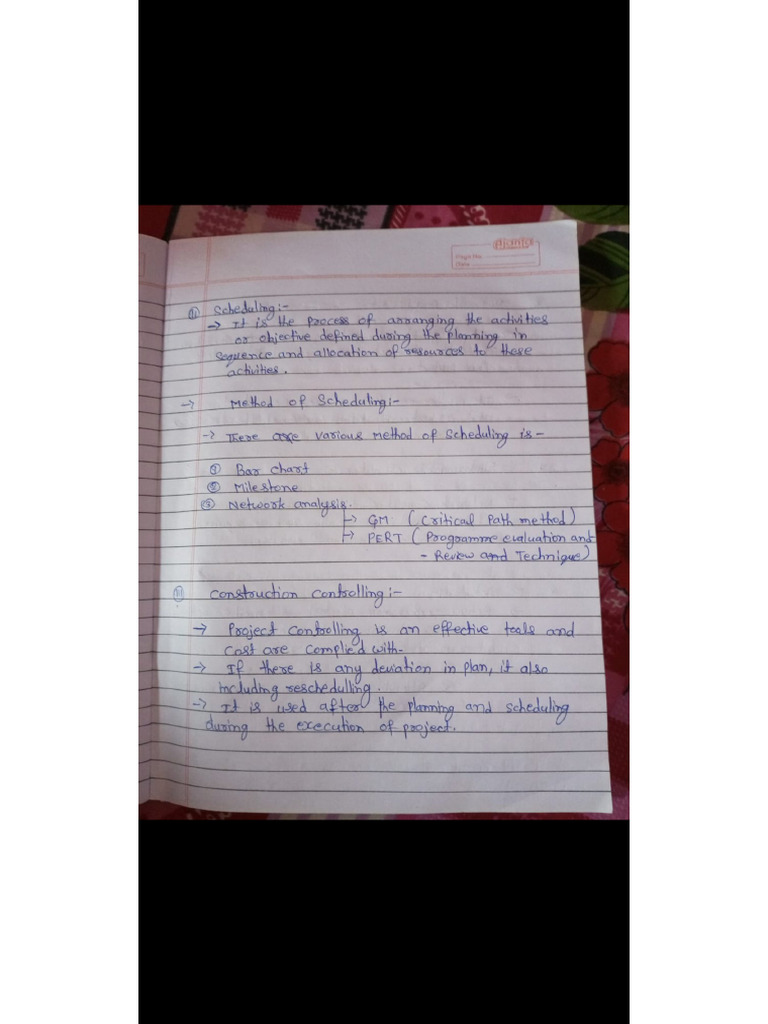 Page No.
Date
(ii) Scheduling:-
→ It is the process of arranging the activities
or objective defined during the planning in
sequence and allocation of resources to these
activities.
→ Method of Scheduling:-
→ There are various method of scheduling is-
① Bar chart
② Milestone
③ Network analysis.
→ CPM (Critical Path method)
→ PERT (Programme evaluation and
- Review and Technique)
(iii) Construction Controlling:-
→ Project controlling is an effective tools and
cost are complied with-
→ If there is any deviation in plan, it also
including reschedulling.
→ It is used after the planning and scheduling
during the execution of project.